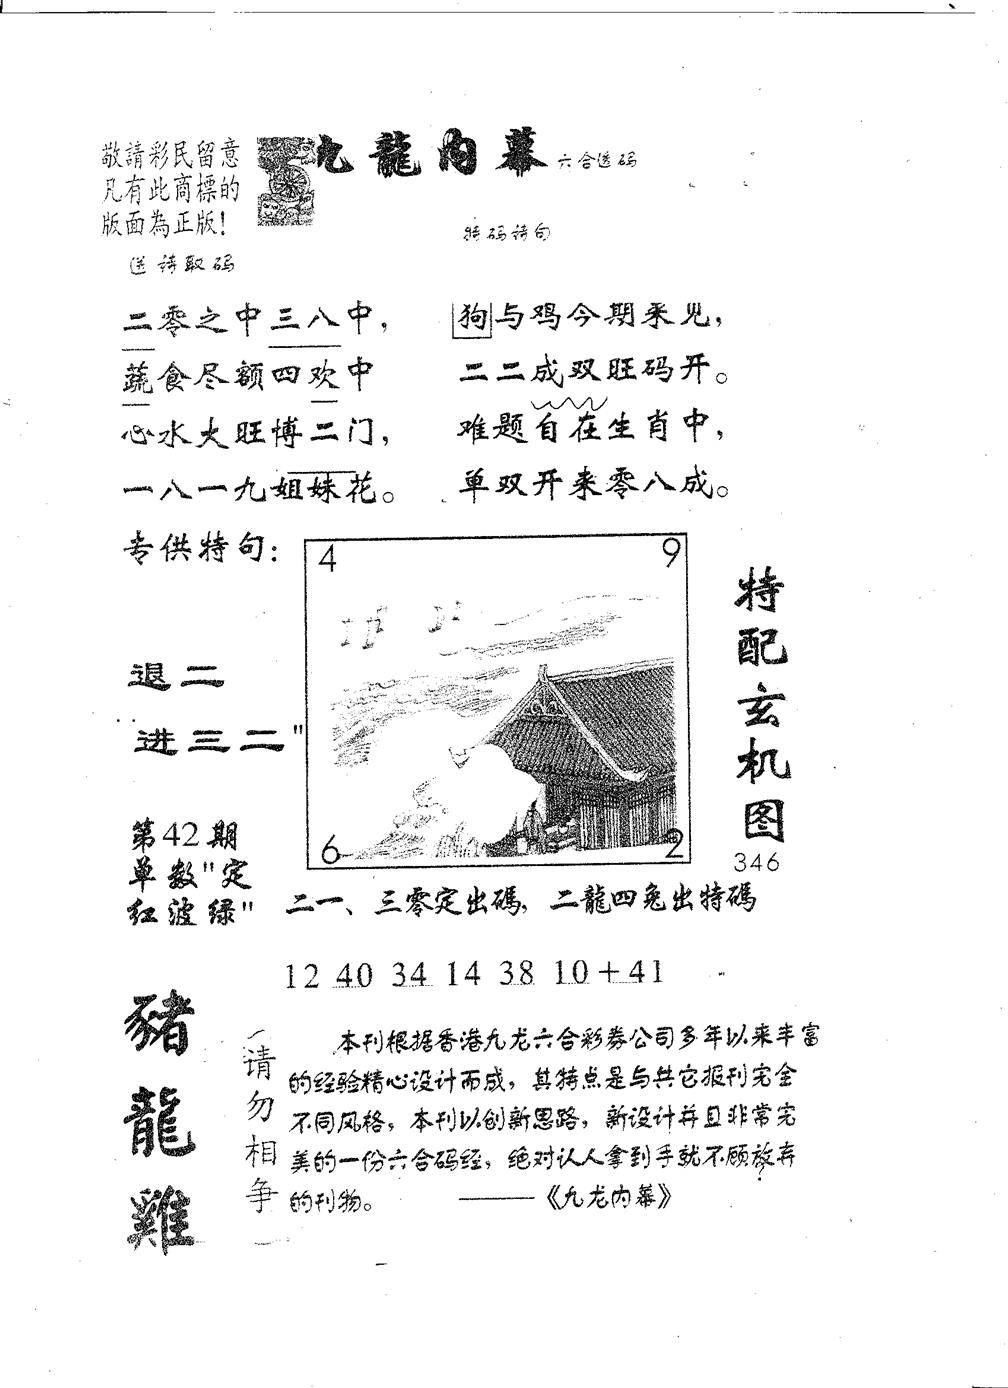 敬請彩民留意
凡有此商標的
版面為正版!
九龍内幕
六合透码
特码诗句
送诗取码
二零之中三八中，
蔬食尽额四欢中
心水大旺博二门，
一八一九姐妹花。
狗与鸡今期来见，
二二成双旺码开。
难题自在生肖中，
单双开来零八成。
专供特句：
退二
进三二"
4 9
6 2
特配玄机图
346
第42期
单数"定
红波绿"
二一、三零定出碼，二龍四兔出特碼
12 40 34 14 38 10+41
豬龍雞
请勿相争
本刊根据香港九龙六合彩券公司多年以来丰富
的经验精心设计而成，其特点是与其它报刊完全
不同风格，本刊以创新思路，新设计并且非常完
美的一份六合码经，绝对认人拿到手就不顾放弃
的刊物。 ———《九龙内幕》